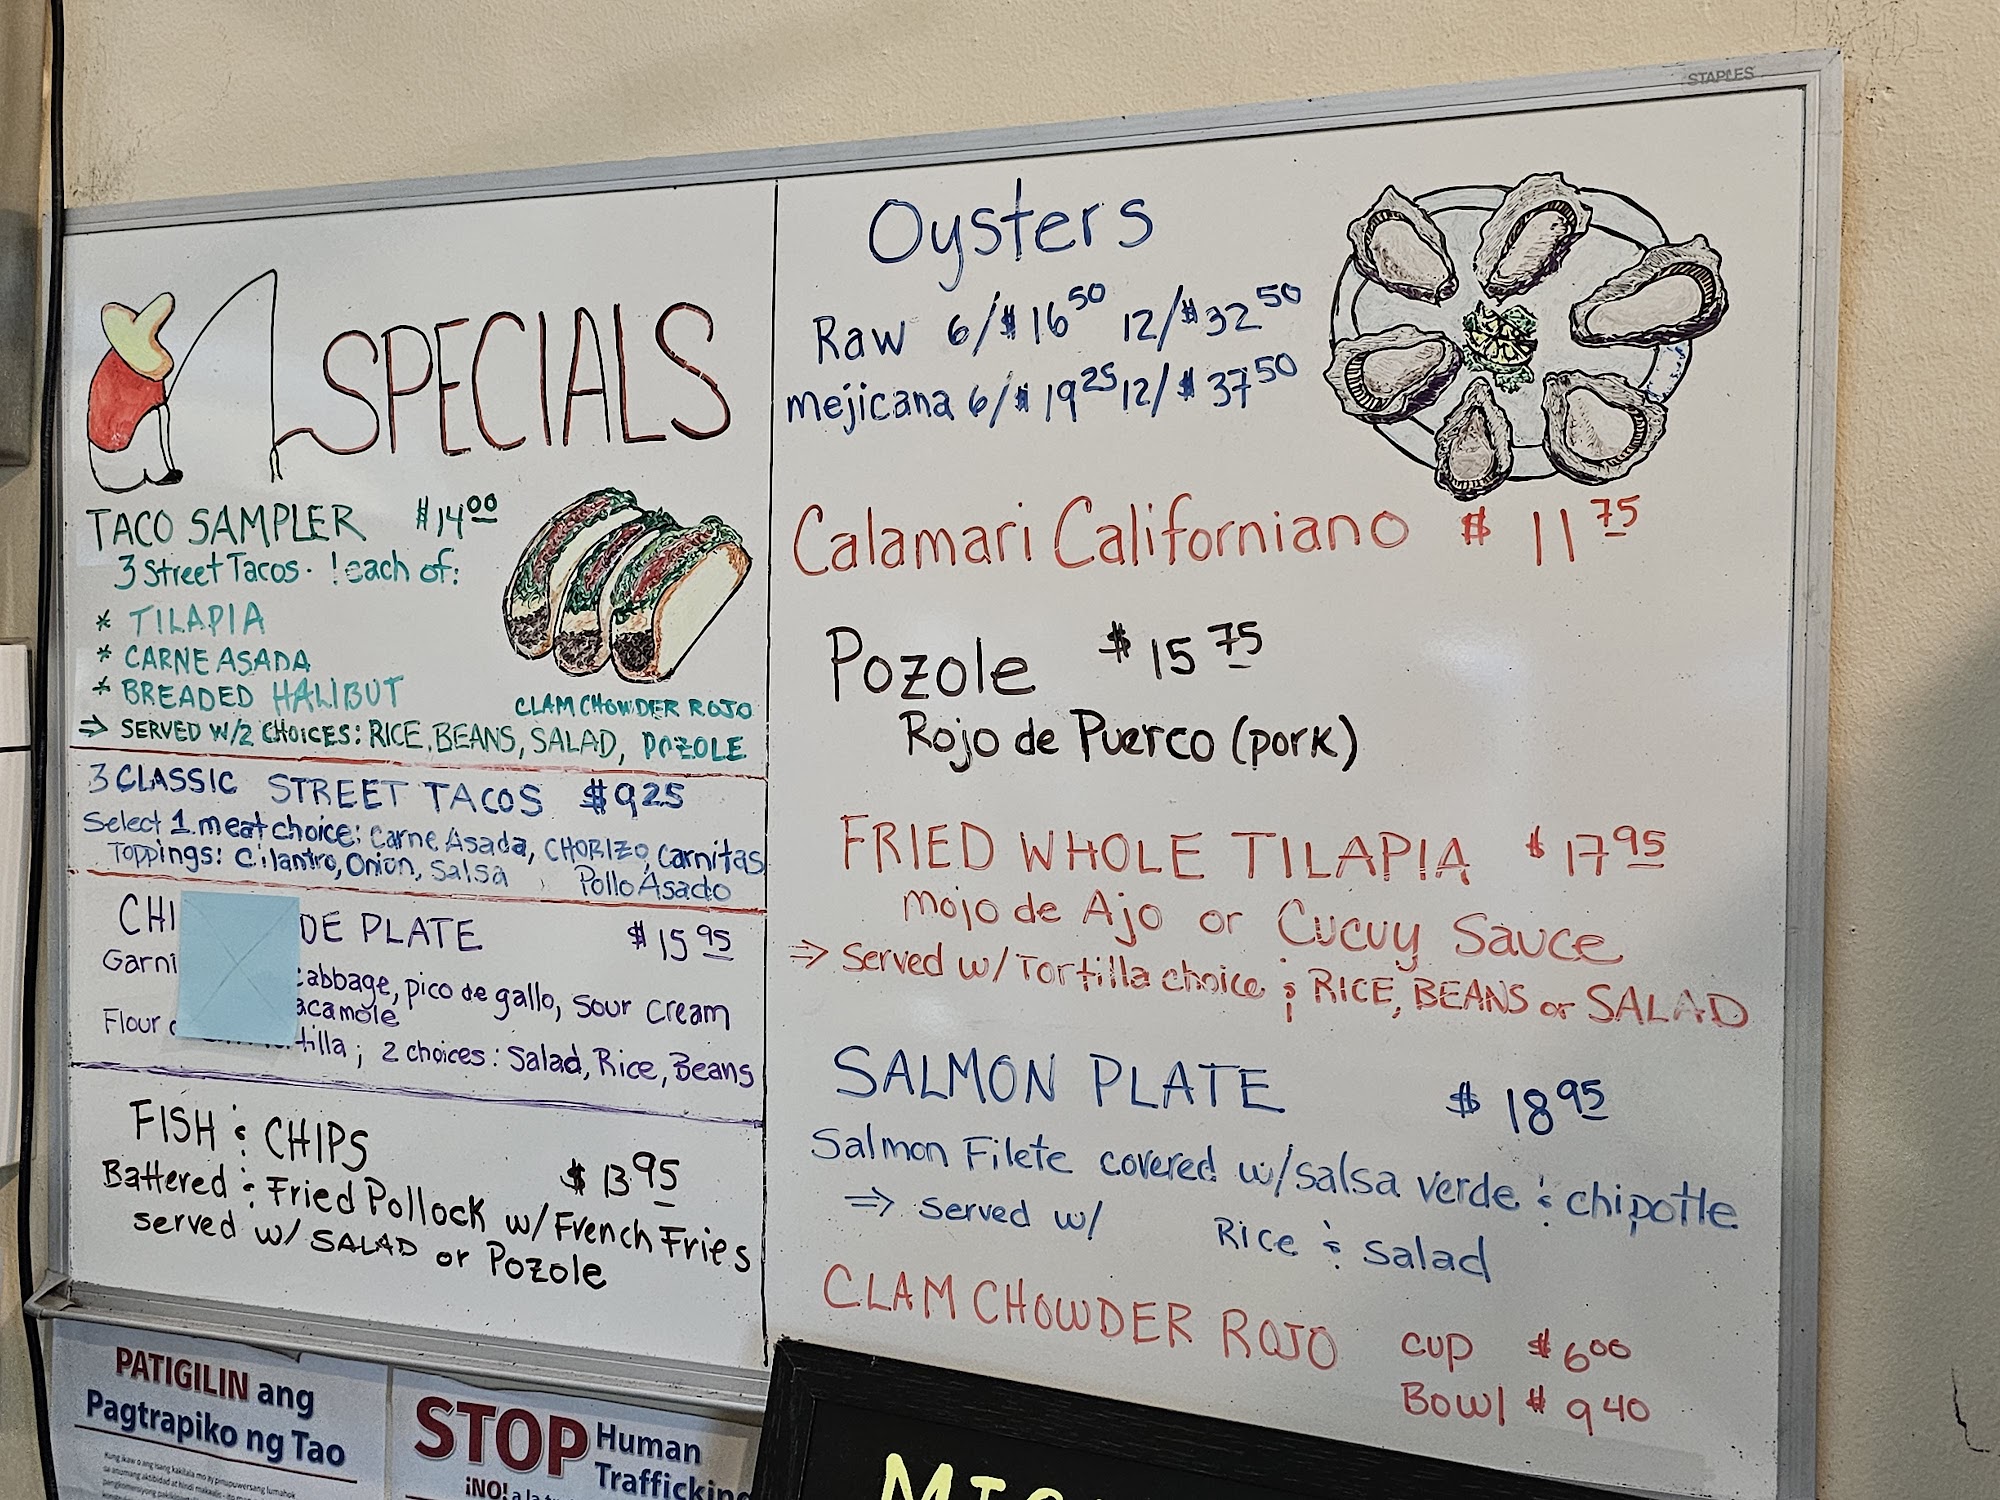 STAPLES
SPECIALS
TACO SAMPLER $14 00
3 Street Tacos. 1 each of:
* TILAPIA
* CARNE ASADA
* BREADED HALIBUT
CLAM CHOWDER ROJO
⇒ SERVED W/2 CHOICES: RICE, BEANS, SALAD, POZOLE
3 CLASSIC STREET TACOS $9 25
Select 1 meat choice: Carne Asada, CHORIZO, Carnitas
Pollo Asado
Toppings: Cilantro, Onion, Salsa
CHI DE PLATE $15 95
Garni abbage, pico de gallo, sour cream
acamole
Flour tilla; 2 choices: Salad, Rice, Beans
FISH & CHIPS
$13 95
Battered & Fried Pollock w/ French Fries
served w/ SALAD or Pozole
Oysters
Raw 6/$16 50 12/$32 50
mejicana 6/$19 25 12/$37 50
Calamari Californiano $11 75
Pozole $15 75
Rojo de Puerco (pork)
FRIED WHOLE TILAPIA $17 95
Mojo de Ajo or Cucuy Sauce
⇒ Served w/ Tortilla choice & RICE, BEANS or SALAD
SALMON PLATE $18 95
Salmon Filete covered w/ salsa verde & chipotle
⇒ Served w/ Rice & Salad
CLAM CHOWDER ROJO CUP $6 00
Bowl $9 40
PATIGILIN ang
Pagtrapiko ng Tao
STOP Human
Trafficking
¡NO! a la